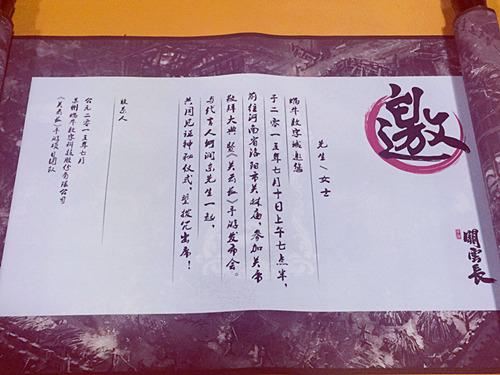 邀
關雲長
先生\女士
蜗牛数字诚邀您
于二零一五年七月十日上午七点半，
前往河南省洛阳市关林庙，参加关帝
敬拜大典暨《关云长》手游发布会。
与代言人何润东先生一起，
共同见证神秘仪式，望拨冗出席！
联系人
公元二零一五年七月
苏州蜗牛数字科技股份有限公司
《关云长》手游项目团队